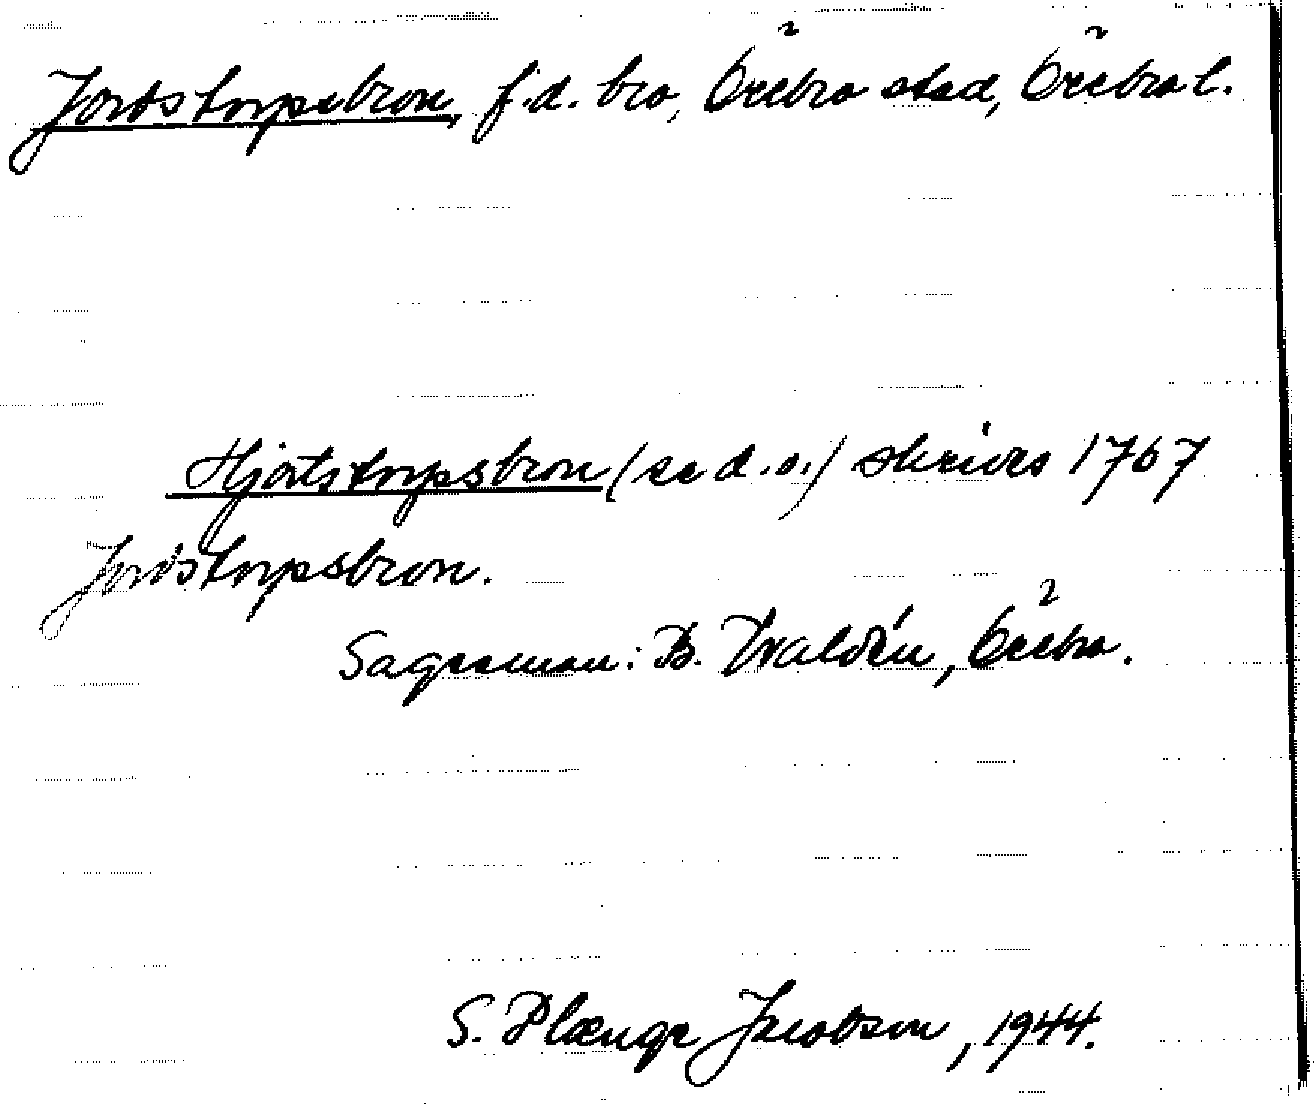 Jordstorpsbron, f.d. bro, Örebro stad, Örebro l.
Hjortstorpsbron (se d.o.) skrives 1767
Jordstorpsbron.
Sagesman: B. Waldén, Örebro.
S. Plænge Jacobson, 1944.